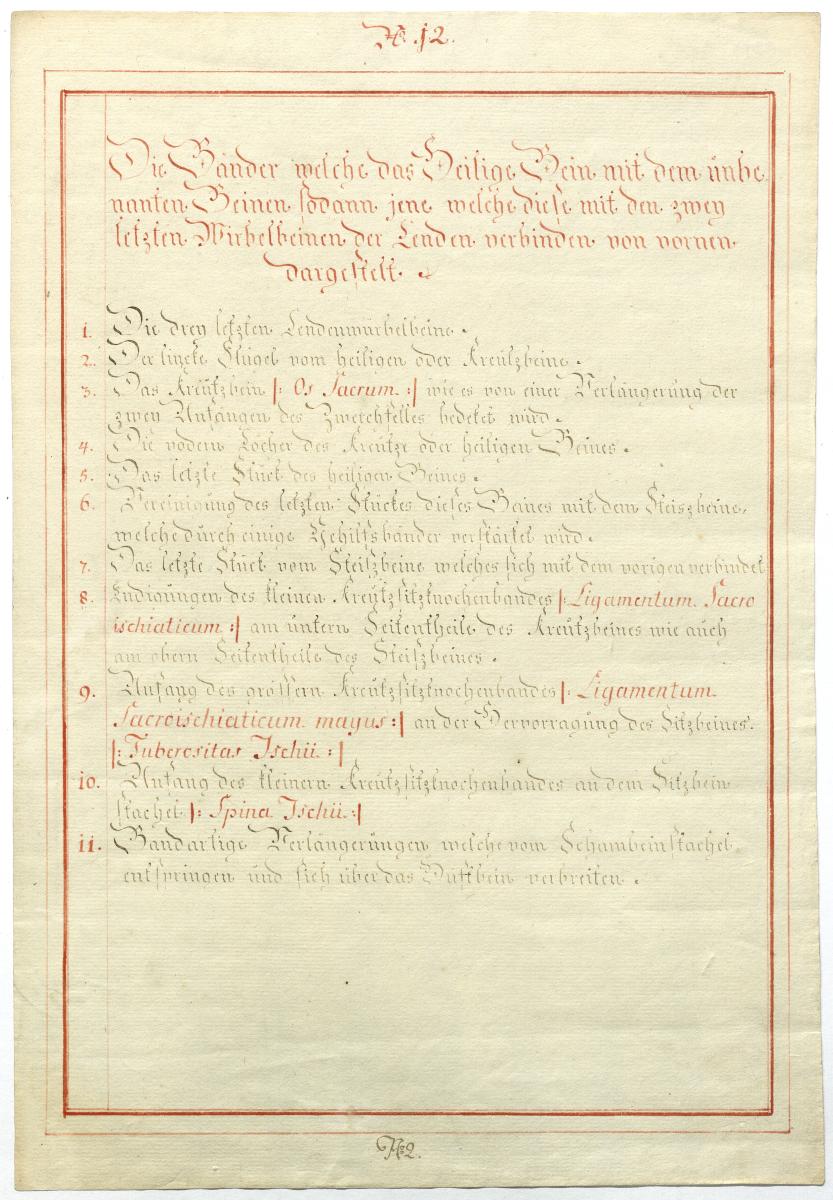 N. 12.
Die Bänder welche das Heilige Bein mit dem ŭnbe
nanten Beinen sodann jene welche diese mit den zwey
letzten Wirbelbeinen der Lenden verbinden von vornen
dargestelt.
1. Die drey letzten Lendenwürbelbeine.
2. Der lincke Flügel vom heiligen oder Kreützbeine.
3. Das Kreützbein |: Os Sacrum :| wie es von einer Verlängerŭng der
zwey Anfängen des Zwerchfelles bedekt wird.
4. Die vodern Löcher des Kreütz oder heiligen Beines.
5. Das letzte Stück des heiligen Beines.
6. Vereinigŭng des letzten Stückes dieses Beines mit dem Steiszbeine,
welche dŭrch einige Hehilfsbänder verstärket wird.
7. Das letzte Stück vom Steiszbeine welches sich mit dem vorigen verbindet
8. Endigŭngen des kleinen Kreützsitzknochenbandes |: Ligamentum Sacro
ischiaticum :| am ŭntern Seitentheile des Kreützbeines wie aŭch
am obern Seitentheile des Steiszbeines.
9. Anfang des grössern Kreützsitzknochenbandes |: Ligamentum
Sacroischiaticum magus :| an der Hervorragŭng des Sitzbeines
|: Tuberositas Ischii :|
10. Anfang des kleinern Kreützsitzknochenbandes an dem Sitzbein
stachel |: Spina Ischii :|
11. Bandartige Verlängerŭngen welche vom Schambeinstachel
entspringen ŭnd sich über das Hüftbein verbreiten.
N. 2.